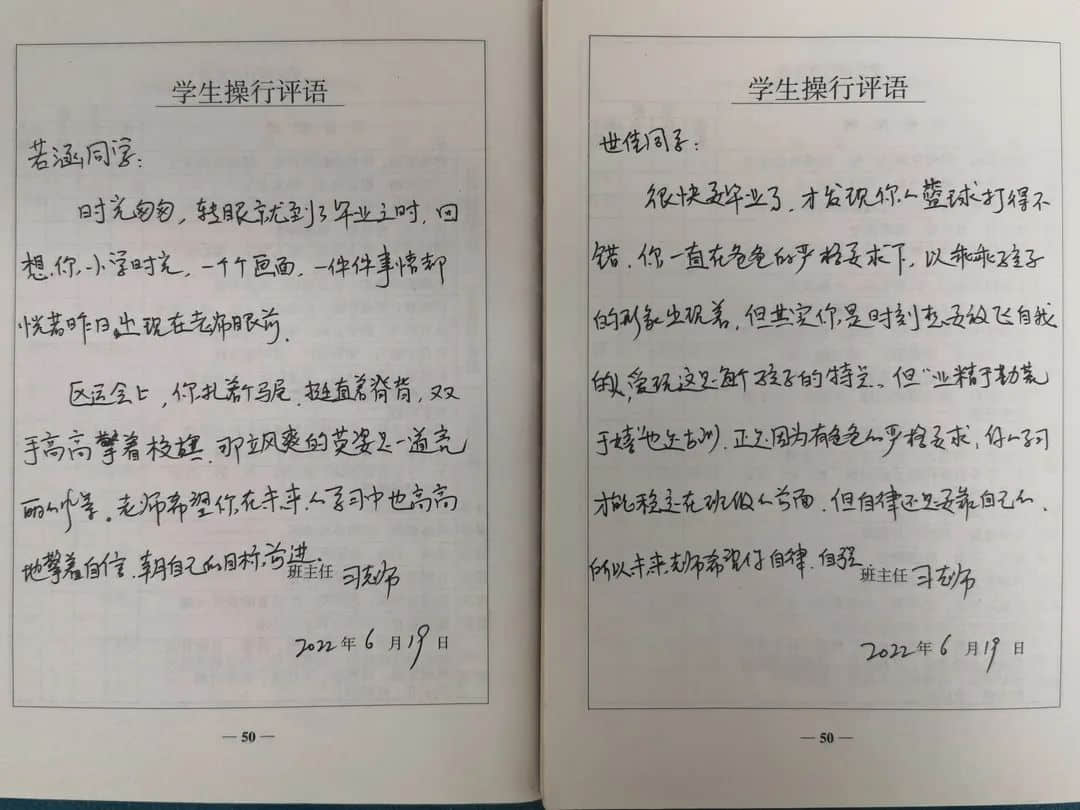 学生操行评语
若涵同学：
时光匆匆，转眼就到了毕业之时，回
想你小学时光，一个个画面，一件件事情都
恍若昨日出现在老师眼前。
区运会上，你扎着个马尾，挺直着脊背，双
手高高擎着校旗，那立风爽的英姿是一道亮
丽的风景。老师希望你在未来的学习中也高高
地擎着自信，朝自己的目标前进。
班主任 习老师
2022年6月19日
— 50 —
学生操行评语
世佳同学：
很快要毕业了，才发现你的篮球打得不
错，你一直在爸爸的严格要求下，以乖乖孩子
的形象出现着，但其实你是时刻想要放飞自我
的人，爱玩这是每个孩子的特点。但"业精于勤荒
于嬉"也是古训，正是因为有爸爸的严格要求，你的学习
才能稳定在班级的前面，但自律还是要靠自己的，
所以未来老师希望你自律、自强。
班主任 习老师
2022年6月19日
— 50 —